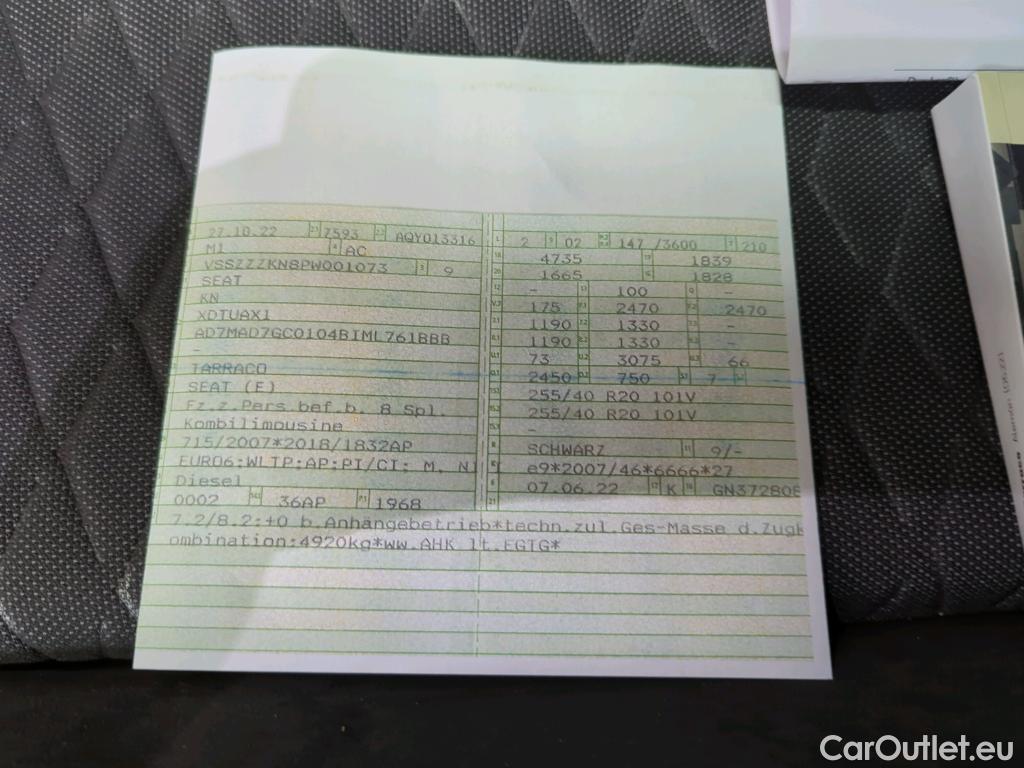 27.10.22 2.1 7593 2.2 AQY013316
M1 4 AC
VSSZZZKN8PW001073 3 9
SEAT
KN
XDTUAX1
AD7MAD7GC0104BIML761BBB
-
TARRACO
SEAT (E)
Fz.z.Pers.bef.b. 8 Spl.
Kombilimousine
715/2007*2018/1832AP
EURO6;WLTP;AP;PI/CI; M, N1
Diesel
0002 14.1 36AP P.1 1968
L 2 9 02 P.2 P.4 147 /3600 T 210
18 4735 19 1839
20 1665 G 1828
12 - 13 100 Q -
V.7 175 F.1 2470 F.2 2470
7.1 1190 7.2 1330 7.3 -
8.1 1190 8.2 1330 8.3 -
U.1 73 U.2 3075 U.3 66
O.1 2450 O.2 750 S.1 7 S.2
15.1 255/40 R20 101V
15.2 255/40 R20 101V
15.3 -
R SCHWARZ 11 9/-
K e9*2007/46*6666*27
6 07.06.22 17 K 16 GN372808
21
7.2/8.2:+0 b.Anhängebetrieb*techn.zul.Ges-Masse d.Zugk
ombination:4920kg*ww.AHK lt.EGTG*
CarOutlet.eu